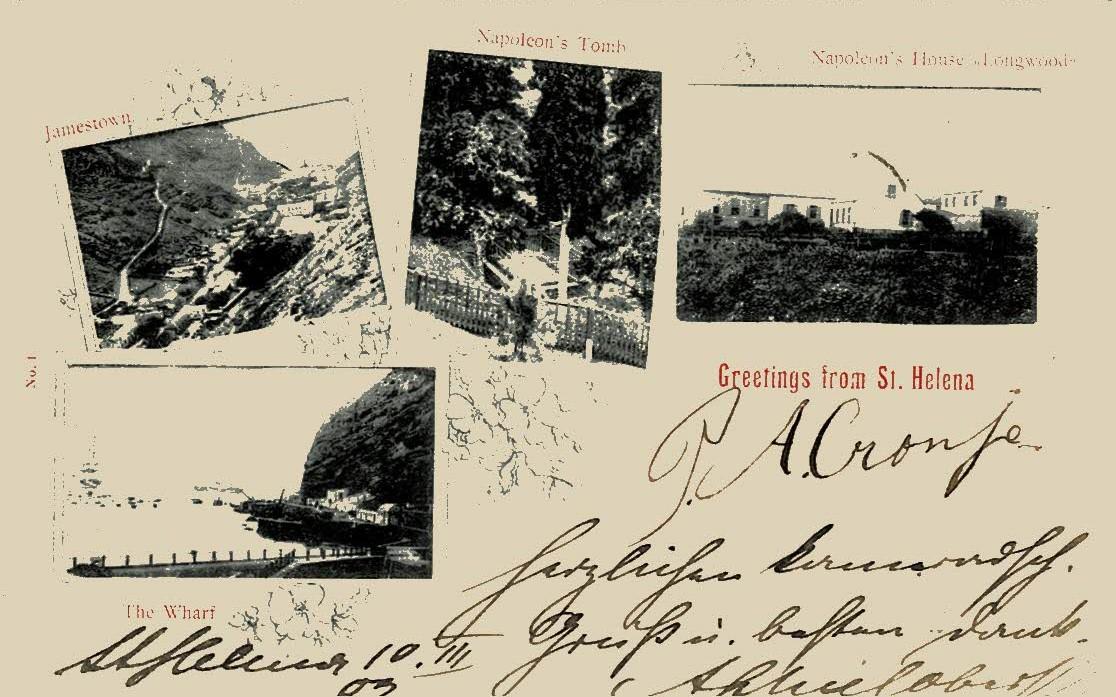 Napoleon's Tomb
Napoleon's House «Longwood»
Jamestown
No. 1
Greetings from St. Helena
P. A. Cronje
Herzlichen kameradsch.
The Wharf
Gruß u. besten Dank.
St Helena 10. III
02